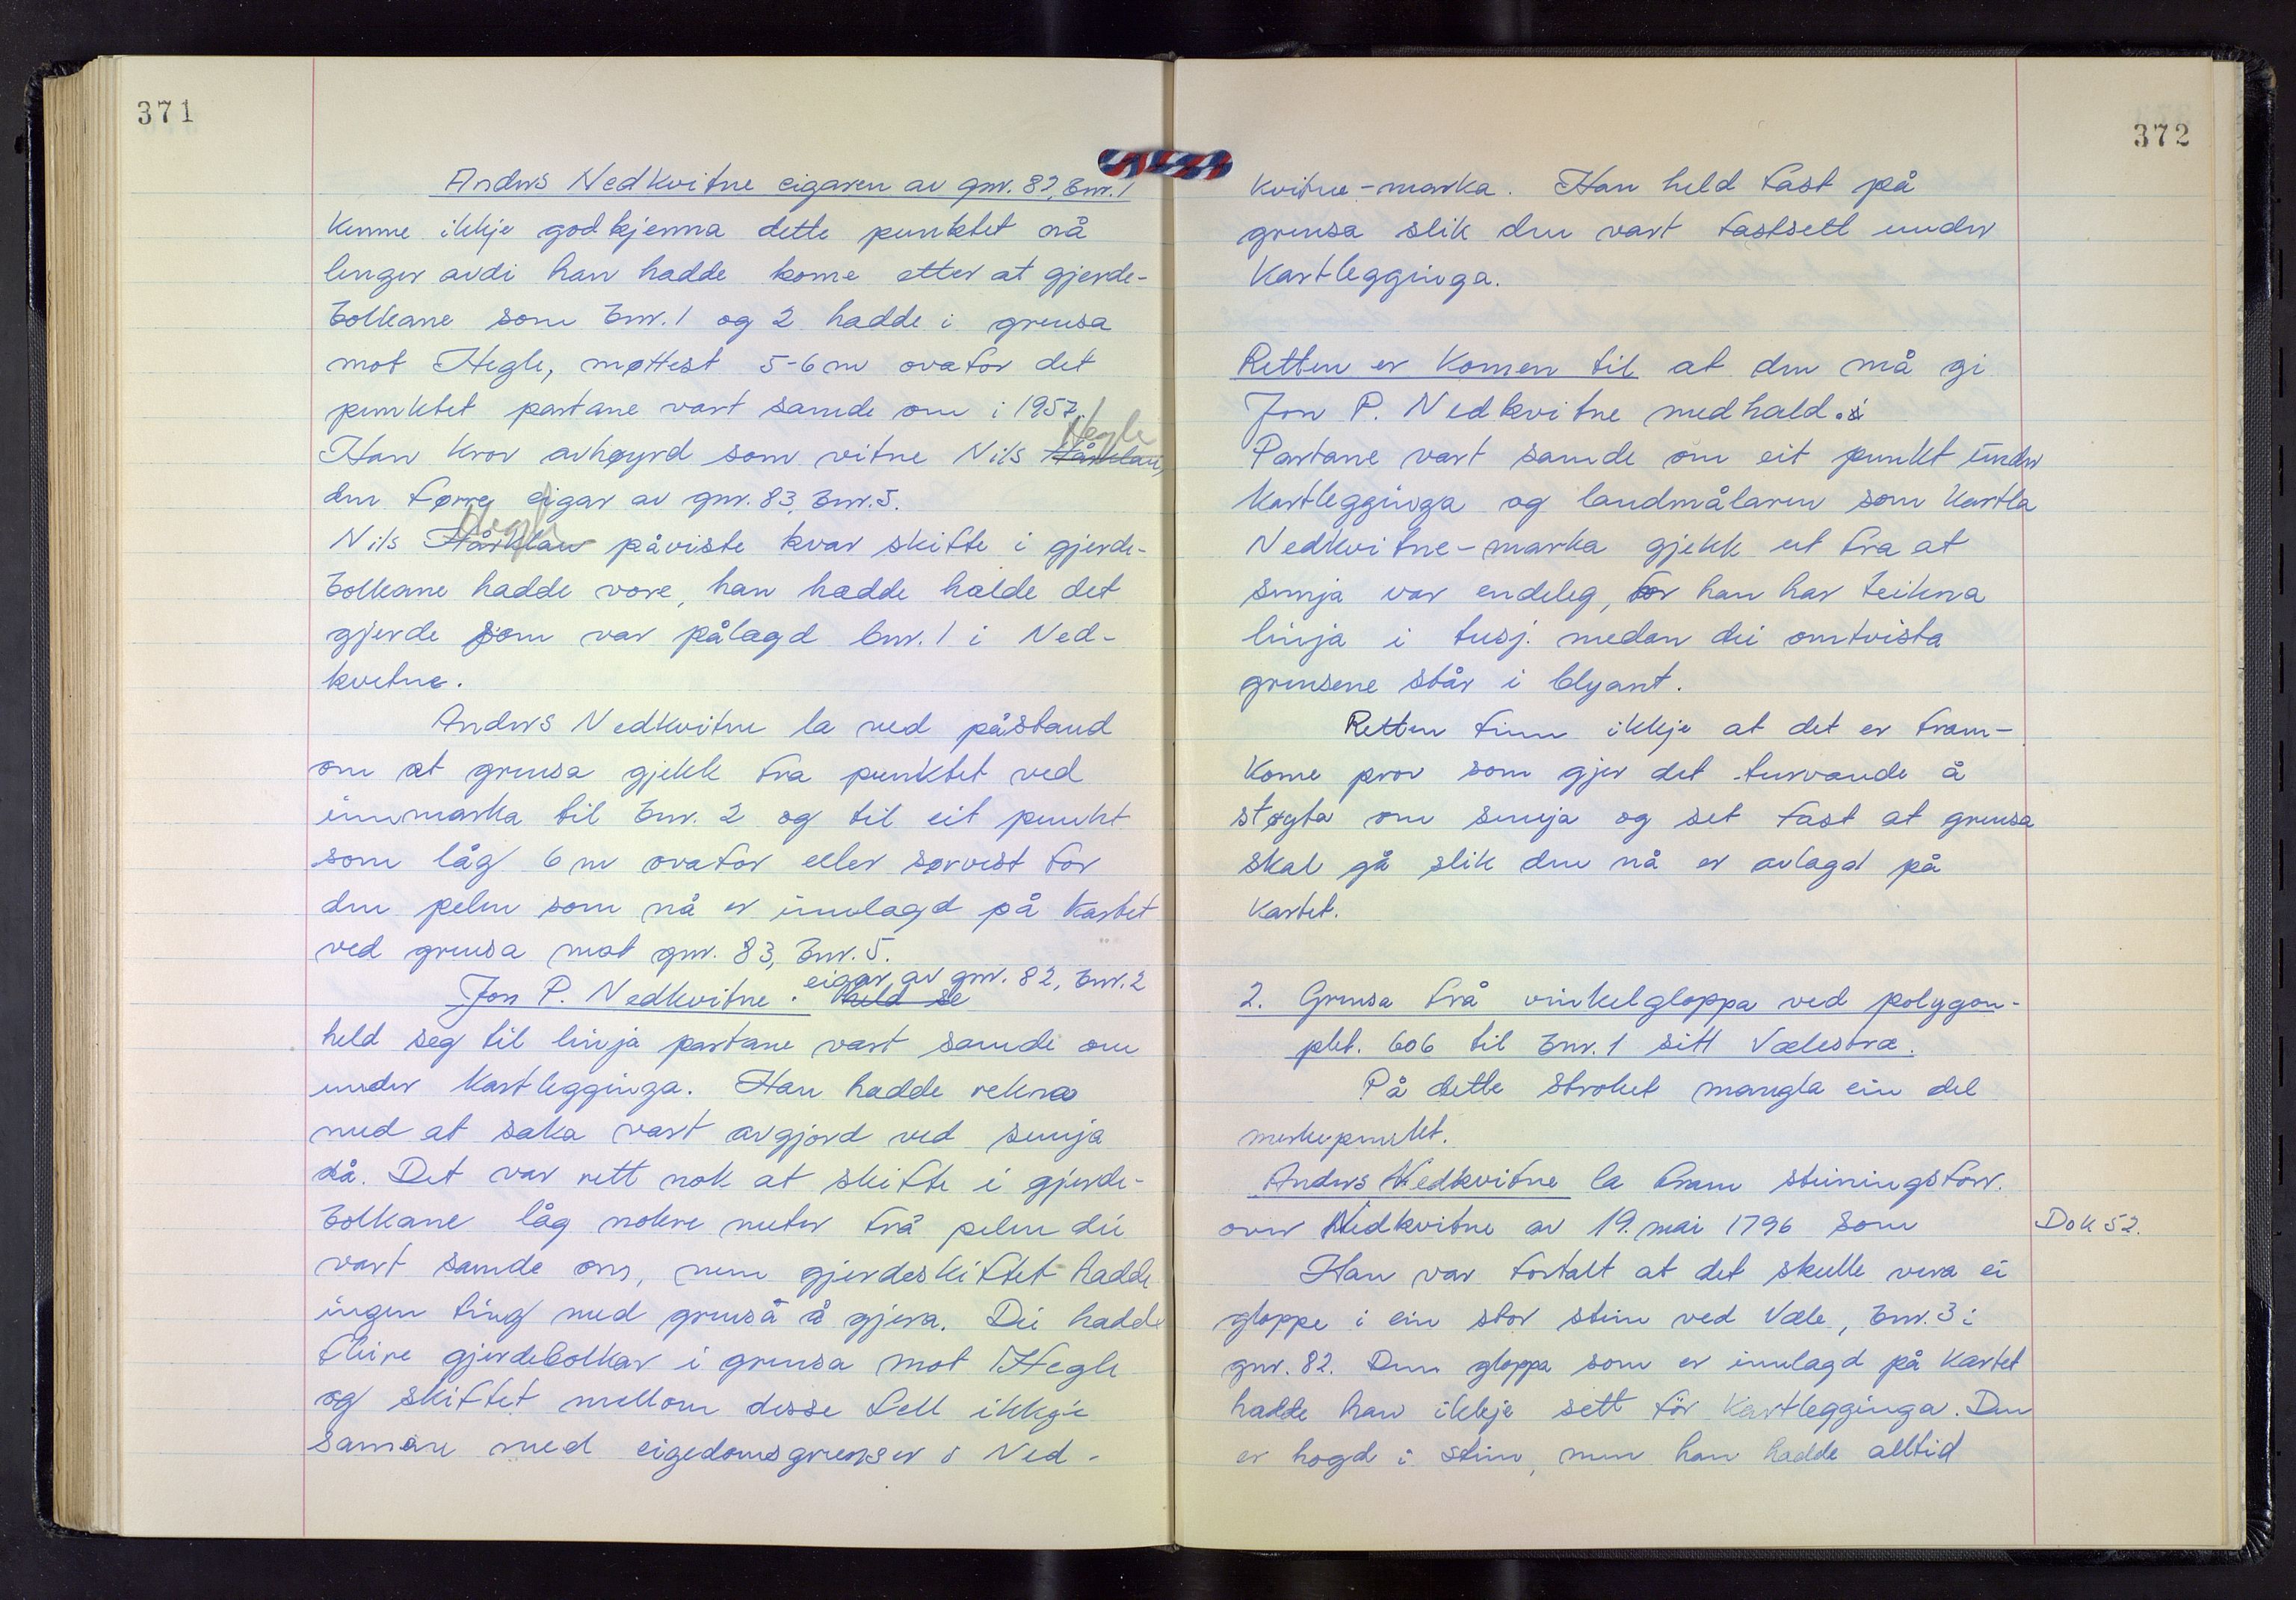 371
Anders Nedkvitne eigaren av gnr. 82, bnr. 1
kunne ikkje godkjenna dette punktet nå
lenger avdi han hadde kome etter at gjerde-
bolkane som bnr. 1 og 2 hadde i grensa
mot Hegle, møttest 5-6 m ovafor det
punktet partane vart samde om i 1957.
Hegle
Han krov avhøyrd som vitne Nils Hårklau,
den førre eigar av gnr. 83, bnr. 5.
Hegle
Nils Hårklau påviste kvar skifte i gjerde-
bolkane hadde vore, han hadde halde det
gjerde som var pålagd bnr. 1 i Ned-
kvitne.
Anders Nedkvitne la ned påstand
om at grensa gjekk fra punktet ved
innmarka til bnr. 2 og til eit punkt
som låg 6 m ovafor eller sørvest for
den pelen som nå er innlagd på kartet
ved grensa mot gnr. 83, bnr. 5.
eigar av gnr. 82, bnr. 2
Jon P. Nedkvitne. held se
held seg til linja partane vart samde om
under kartlegginga. Han hadde rekna
med at saka vart avgjord ved semja
då. Det var rett nok at skifte i gjerde-
bolkane låg nokre meter frå pelen dei
vart samde om, men gjerdeskiftet hadde
ingen ting med grensa å gjera. Dei hadde
fleire gjerdebolkar i grensa mot Hegle
og skiftet mellom desse fell ikkje
saman med eigedomsgrenser i Ned-
372
kvitne-marka. Han held fast på
grensa slik den vart fastsett under
kartlegginga.
Retten er komen til at den må gi
Jon P. Nedkvitne medhald.
Partane vart samde om eit punkt under
kartlegginga og landmålaren som kartla
Nedkvitne-marka gjekk ut fra at
semja var endeleg, for han har teikna
linja i tusj. medan dei omtvista
grensene står i blyant.
Retten finn ikkje at det er fram-
kome prov som gjer det turvande å
støyta om semja og set fast at grensa
skal gå slik den nå er avlagd på
kartet.
2. Grensa frå vinkelgloppa ved polygon-
pkt. 606 til bnr. 1 sitt Vælestræ.
På dette stroket mangla ein del
merkepunkt.
Anders Nedkvitne la fram steiningsforr.
over Nedkvitne av 19. mai 1796 som
Dok 52.
Han var fortalt at det skulle vera ei
gloppe i ein stor stein ved Væle, bnr. 3 i
gnr. 82. Den gloppa som er innlagd på kartet
hadde han ikkje sett før kartlegginga. Den
er hogd i stein, men han hadde alltid